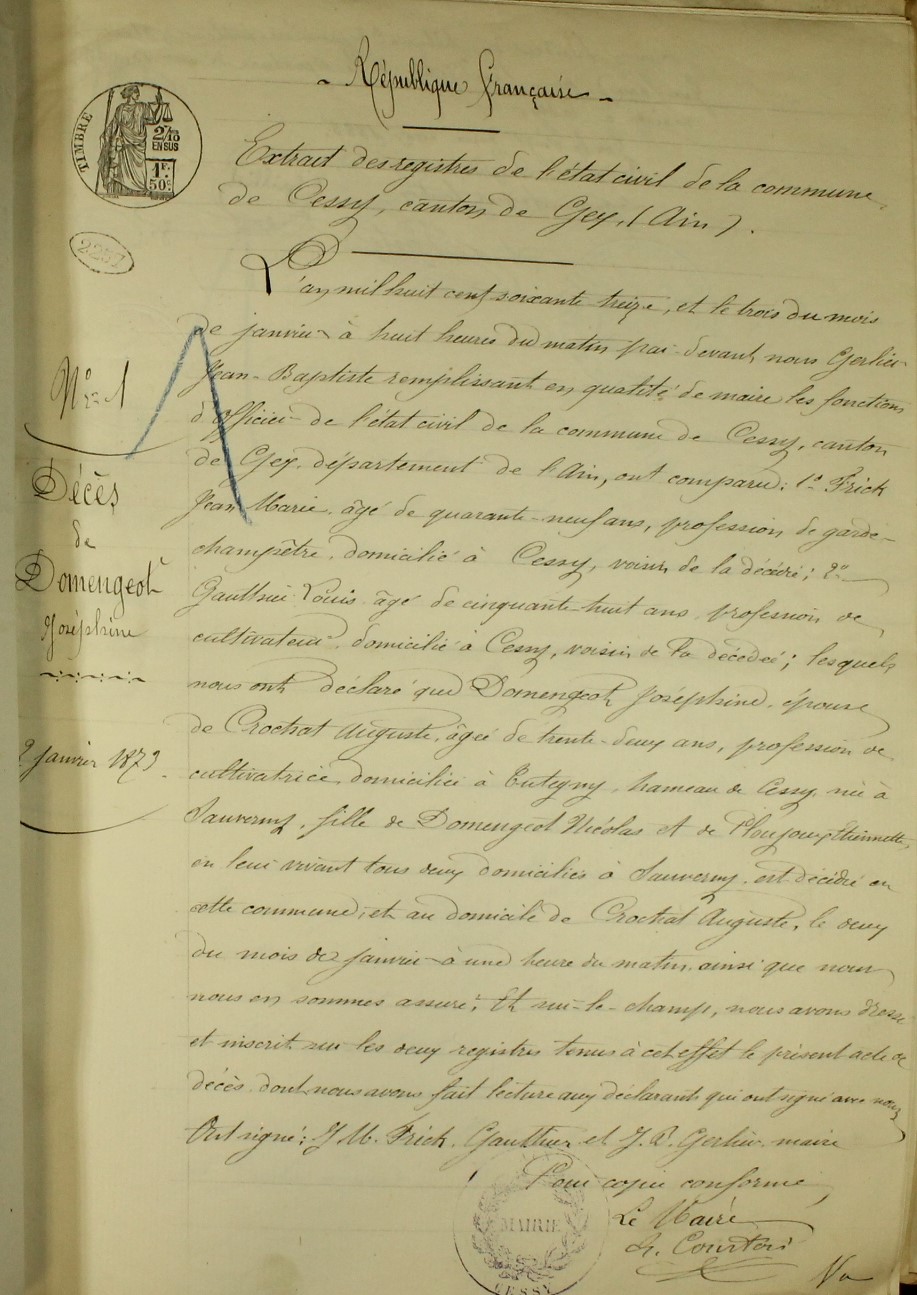 République française
TIMBRE
2/10
EN SUS
1F.
50c.
Extrait des registres de l'état civil de la commune
de Cessy, canton de Gex, (Ain).
L'an mil huit cent soixante treize, et le trois du mois
de janvier à huit heures du matin par-devant nous Gerlier
Jean-Baptiste remplissant en qualité de maire les fonctions
d'officier de l'état civil de la commune de Cessy, canton
de Gex, département de l'Ain, ont comparu: 1° Frick
Jean Marie, âgé de quarante-neuf ans, profession de garde-
champêtre, domicilié à Cessy, voisin de la décédée; 2°
Gaulthier Louis âgé de cinquante huit ans, profession de
cultivateur, domicilié à Cessy, voisin de la décédée; lesquels
nous ont déclaré que Domengeot Joséphine, épouse
de Crochat Auguste, âgée de trente-deux ans, profession de
cultivatrice, domiciliée à Tutegny, hameau de Cessy, née à
Sauverny, fille de Domengeot Nicolas et de
en leur vivant tous deux domiciliés à Sauverny, est décédée en
cette commune, et au domicile de Crochat Auguste, le deux
du mois de janvier à une heure du matin, ainsi que nous
nous en sommes assuré; Et sur-le-champ, nous avons dressé
et inscrit sur les deux registres tenus à cet effet le présent acte de
décès dont nous avons fait lecture aux déclarants qui ont signé avec nous
Ont signé: J. M. Frick, Gaulthier et J. B. Gerlier maire
Pour copie conforme,
Le Maire
Courtois
MAIRIE
CESSY
N° 1
Décès
de
Domengeot
Joséphine
2 janvier 1873